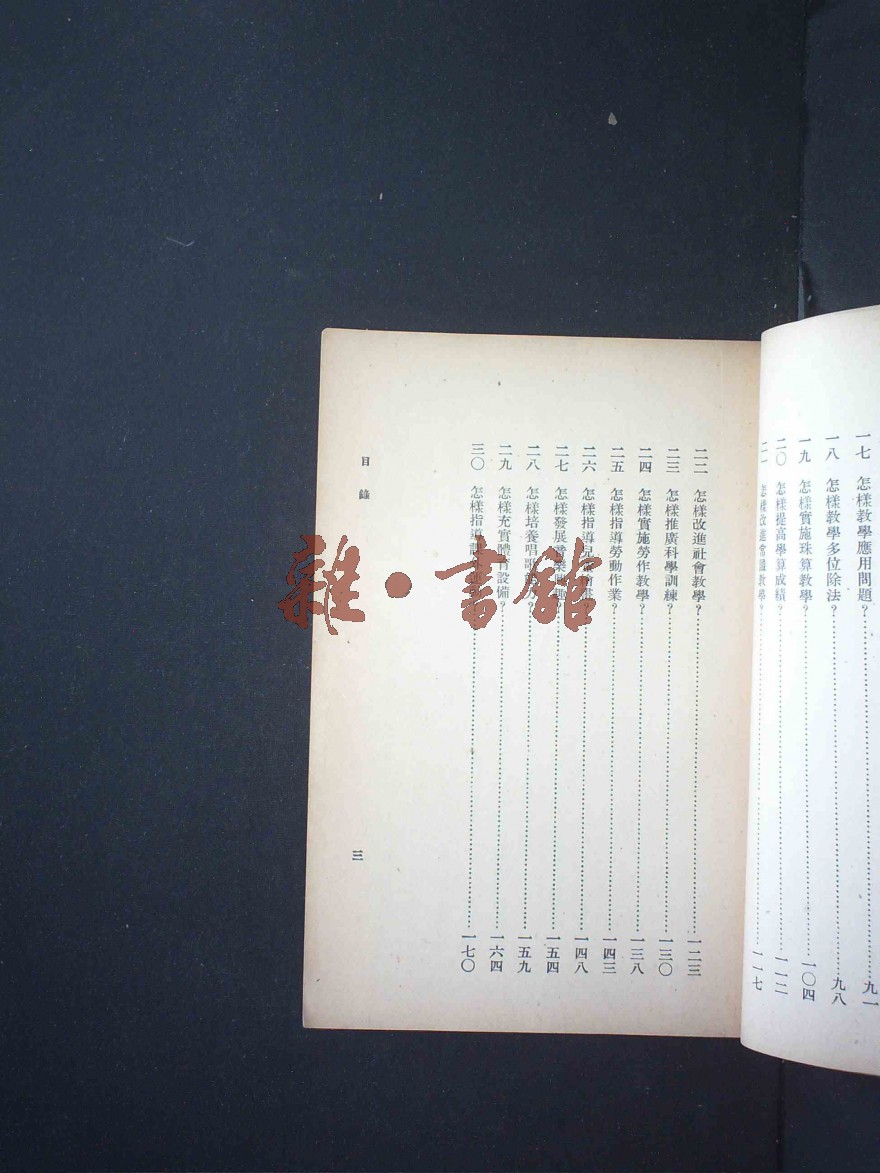 一七 怎樣教學應用問題？……九一
一八 怎樣教學多位除法？……九八
一九 怎樣實施珠算教學？……一〇四
二〇 怎樣提高學算成績？……一一二
二一 怎樣改進常識教學？……一一七
二二 怎樣改進社會教學？……一二三
二三 怎樣推廣科學訓練？……一三〇
二四 怎樣實施勞作教學？……一三八
二五 怎樣指導勞動作業？……一四三
二六 怎樣指導兒……一四八
二七 怎樣發展……一五四
二八 怎樣培養唱歌……？……一五九
二九 怎樣充實體育設備？……一六四
三〇 怎樣指導……一七〇
目錄
三
雜·書館